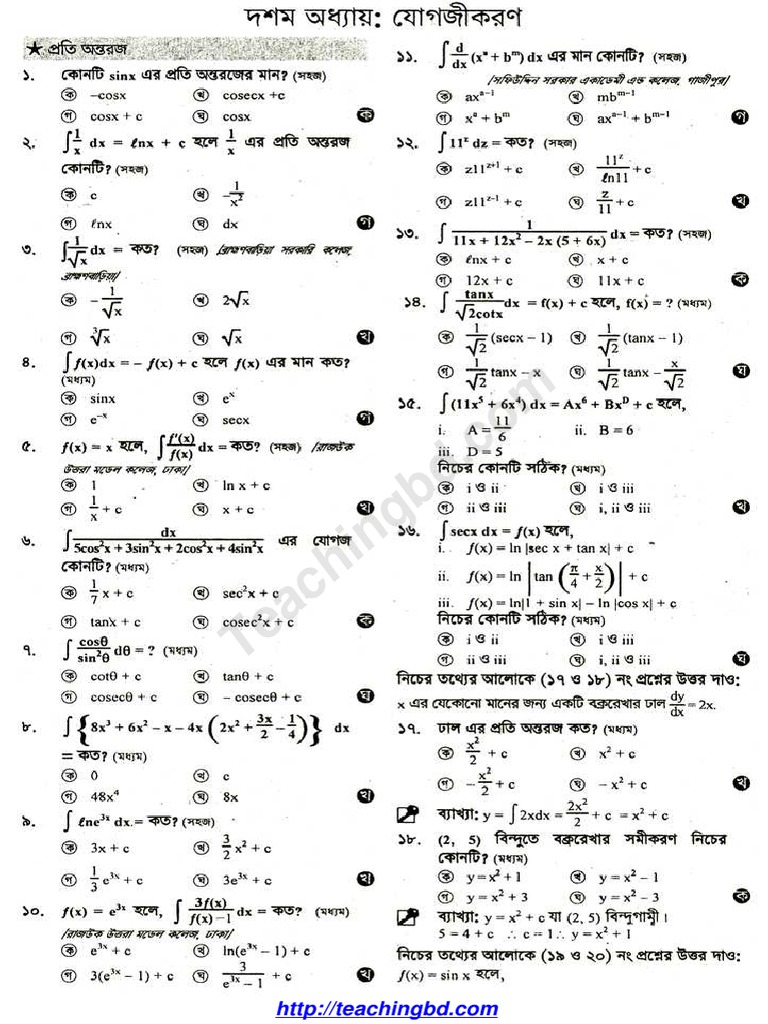 দশম অধ্যায়: যোগজীকরণ
★ প্রতি অন্তরজ
১. কোনটি sinx এর প্রতি অন্তরজের মান? (সহজ)
ক –cosx খ cosecx +c
গ cosx + c ঘ cosx ক
২. ∫1/x dx = ℓnx + c হলে 1/x এর প্রতি অন্তরজ
কোনটি? (সহজ)
ক c খ –1/x²
গ ℓnx ঘ dx গ
৩. ∫1/√x dx = কত? (সহজ) [ব্রাহ্মণবাড়িয়া সরকারি কলেজ,
ব্রাহ্মণবাড়িয়া]
ক –1/√x খ 2√x
গ ∛x ঘ √x খ
৪. ∫f(x)dx = – f(x) + c হলে f(x) এর মান কত?
(মধ্যম)
ক sinx খ eˣ
গ e⁻ˣ ঘ secx গ
৫. f(x) = x হলে, ∫f'(x)/f(x) dx = কত? (সহজ) [রাজউক
উত্তরা মডেল কলেজ, ঢাকা]
ক 1 খ ln x + c
গ 1/x + c ঘ x + c খ
৬. ∫dx/(5cos²x + 3sin²x + 2cos²x + 4sin²x) এর যোগজ
কোনটি? (মধ্যম)
ক 1/7 x + c খ sec²x + c
গ tanx + c ঘ cosec²x + c ক
৭. ∫cosθ/sin²θ dθ = ? (মধ্যম)
ক cotθ + c খ tanθ + c
গ cosecθ + c ঘ – cosecθ + c ঘ
৮. ∫{8x³ + 6x² – x – 4x (2x² + 3x/2 – 1/4)} dx
= কত? (মধ্যম)
ক 0 খ c
গ 48x⁴ ঘ 8x খ
৯. ∫ℓne³ˣ dx = কত? (সহজ)
ক 3x + c খ 3/2 x² + c
গ 1/3 e³ˣ + c ঘ 3e³ˣ + c খ
১০. f(x) = e³ˣ হলে, ∫3f(x)/(f(x) –1) dx = কত? (মধ্যম)
[রাজউক উত্তরা মডেল কলেজ, ঢাকা]
ক e³ˣ + c খ ln(e³ˣ – 1) + c
গ 3(e³ˣ – 1) + c ঘ 3/(e³ˣ – 1) + c খ
১১. ∫d/dx (xᵃ + bᵐ) dx এর মান কোনটি? (সহজ)
[সফিউদ্দিন সরকার একাডেমী এন্ড কলেজ, গাজীপুর]
ক axᵃ⁻¹ খ mbᵐ⁻¹
গ xᵃ + bᵐ ঘ axᵃ⁻¹ + bᵐ⁻¹ গ
১২. ∫11ᶻ dz = কত? (সহজ)
ক z11ᶻ⁺¹ + c খ 11ᶻ/ℓn11 + c
গ z11ᶻ⁻¹ + c ঘ z/11 + c খ
১৩. ∫1/(11x + 12x² – 2x (5 + 6x)) dx = কত? (সহজ)
ক ℓnx + c খ x + c
গ 12x + c ঘ 11x + c ক
১৪. ∫tanx/(√2cotx) dx = f(x) + c হলে, f(x) = ? (মধ্যম)
ক 1/√2 (secx – 1) খ 1/√2 (tanx – 1)
গ 1/√2 tanx – x ঘ 1/√2 tanx – x/√2 ঘ
১৫. ∫(11x⁵ + 6x⁴) dx = Ax⁶ + Bxᴰ + c হলে,
i. A = 11/6 ii. B = 6
iii. D = 5
নিচের কোনটি সঠিক? (মধ্যম)
ক i ও ii খ i ও iii
গ ii ও iii ঘ i, ii ও iii খ
১৬. ∫secx dx = f(x) হলে,
i. f(x) = ln |sec x + tan x| + c
ii. f(x) = ln |tan (π/4 + x/2)| + c
iii. f(x) = ln|1 + sin x| – ln |cos x| + c
নিচের কোনটি সঠিক? (মধ্যম)
ক i ও ii খ i ও iii
গ ii ও iii ঘ i, ii ও iii ঘ
নিচের তথ্যের আলোকে (১৭ ও ১৮) নং প্রশ্নের উত্তর দাও:
x এর যেকোনো মানের জন্য একটি বক্ররেখার ঢাল dy/dx = 2x.
১৭. ঢাল এর প্রতি অন্তরজ কত? (মধ্যম)
ক x²/2 + c খ x² + c
গ –x²/2 + c ঘ – x² + c খ
ব্যাখ্যা: y = ∫2xdx = 2x²/2 + c = x² + c
১৮. (2, 5) বিন্দুতে বক্ররেখার সমীকরণ নিচের
কোনটি? (মধ্যম)
ক y = x² + 1 খ y = x² – 1
গ y = x² + 3 ঘ y = x² – 3 ক
ব্যাখ্যা: y = x² + c যা (2, 5) বিন্দুগামী।
5 = 4 + c ∴ c = 1 ∴ y = x² + 1
নিচের তথ্যের আলোকে (১৯ ও ২০) নং প্রশ্নের উত্তর দাও:
f(x) = sin x হলে,
Teachingbd.com
http://teachingbd.com